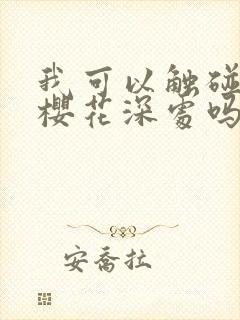 我可以触碰
樱花深处吗
安乔拉